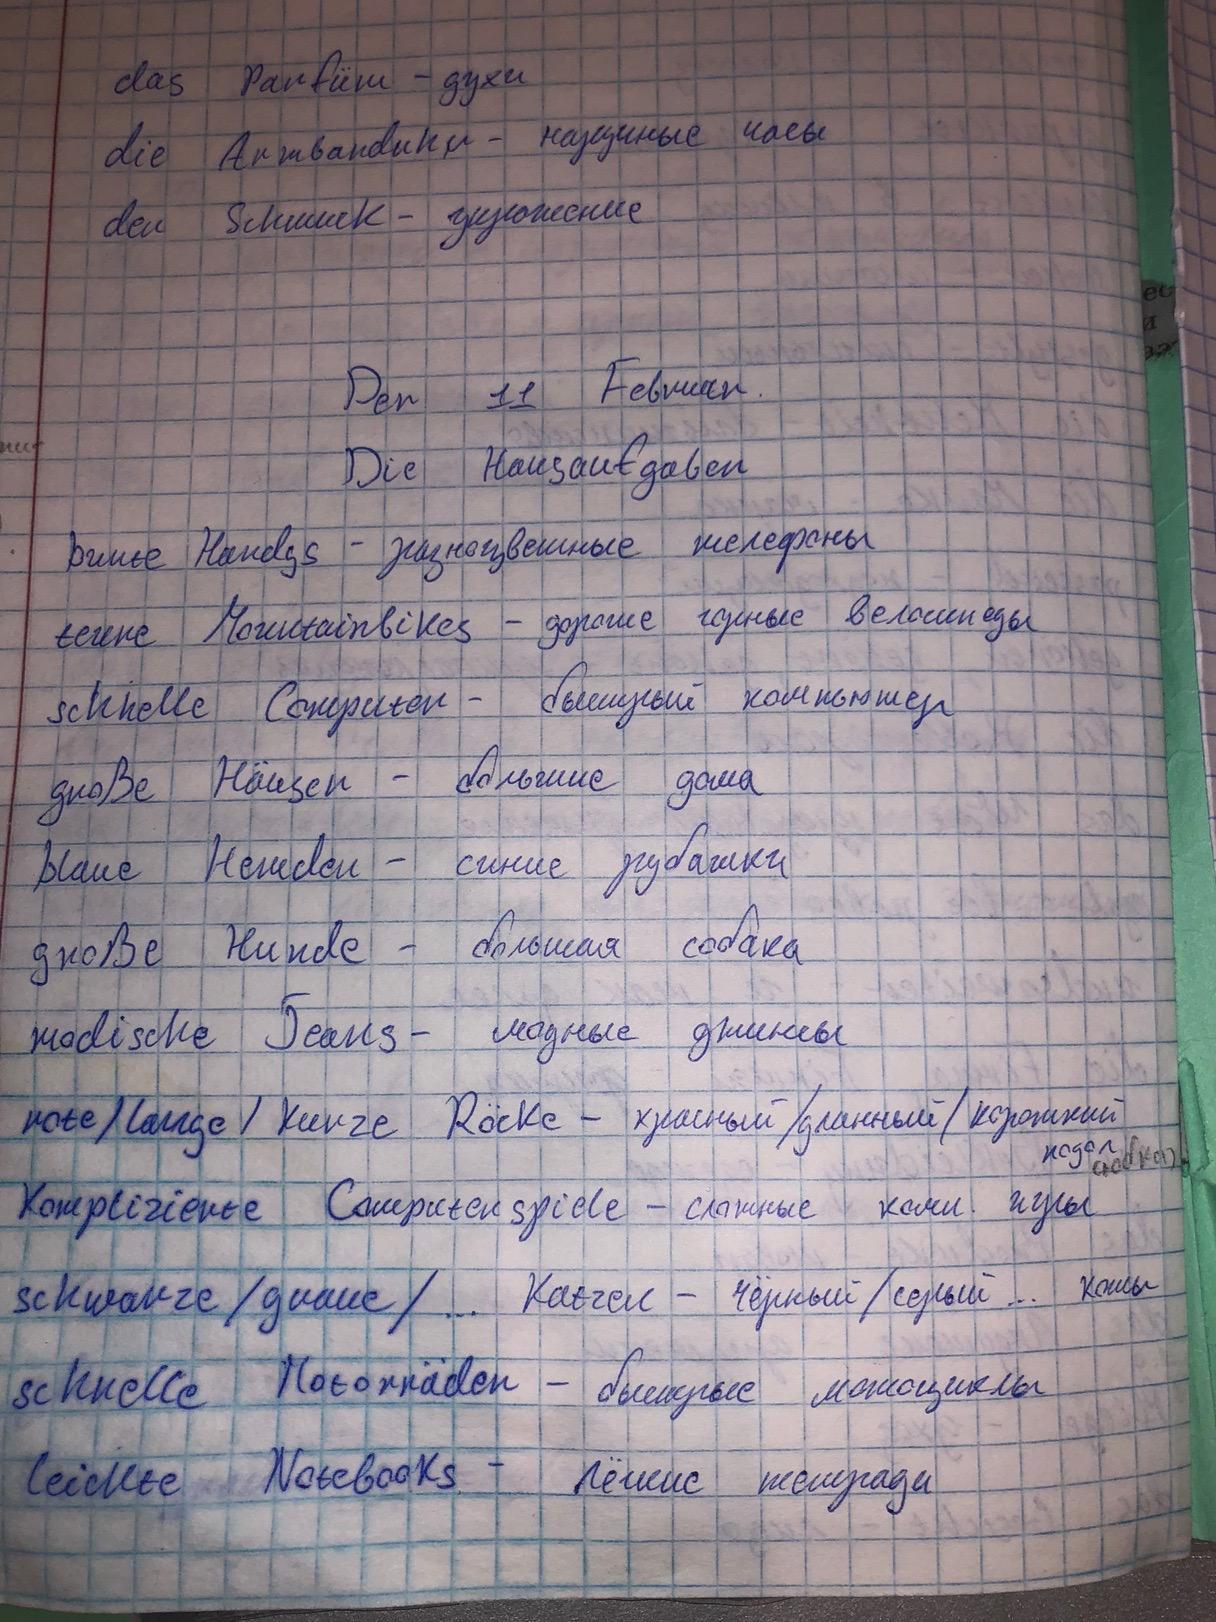 das Parfüm - духи
die Armbanduhr - наручные часы
der Schmuck - украшение
Der 11 Februar.
Die Hausaufgaben
bunte Handys - разноцветные телефоны
teure Mountainbikes - дорогие горные велосипеды
schnelle Computer - быстрый компьютер
große Häuser - большие дома
blaue Hemden - синие рубашки
große Hunde - большая собака
modische Jeans - модные джинсы
rote/lange/kurze Röcke - красный/длинный/короткий
подол
Komplizierte Computerspiele - сложные комп. игры
schwarze/graue/... Katzen - чёрный/серый... коты
schnelle Motorräder - быстрые мотоциклы
leichte Notebooks - лёгкие тетради